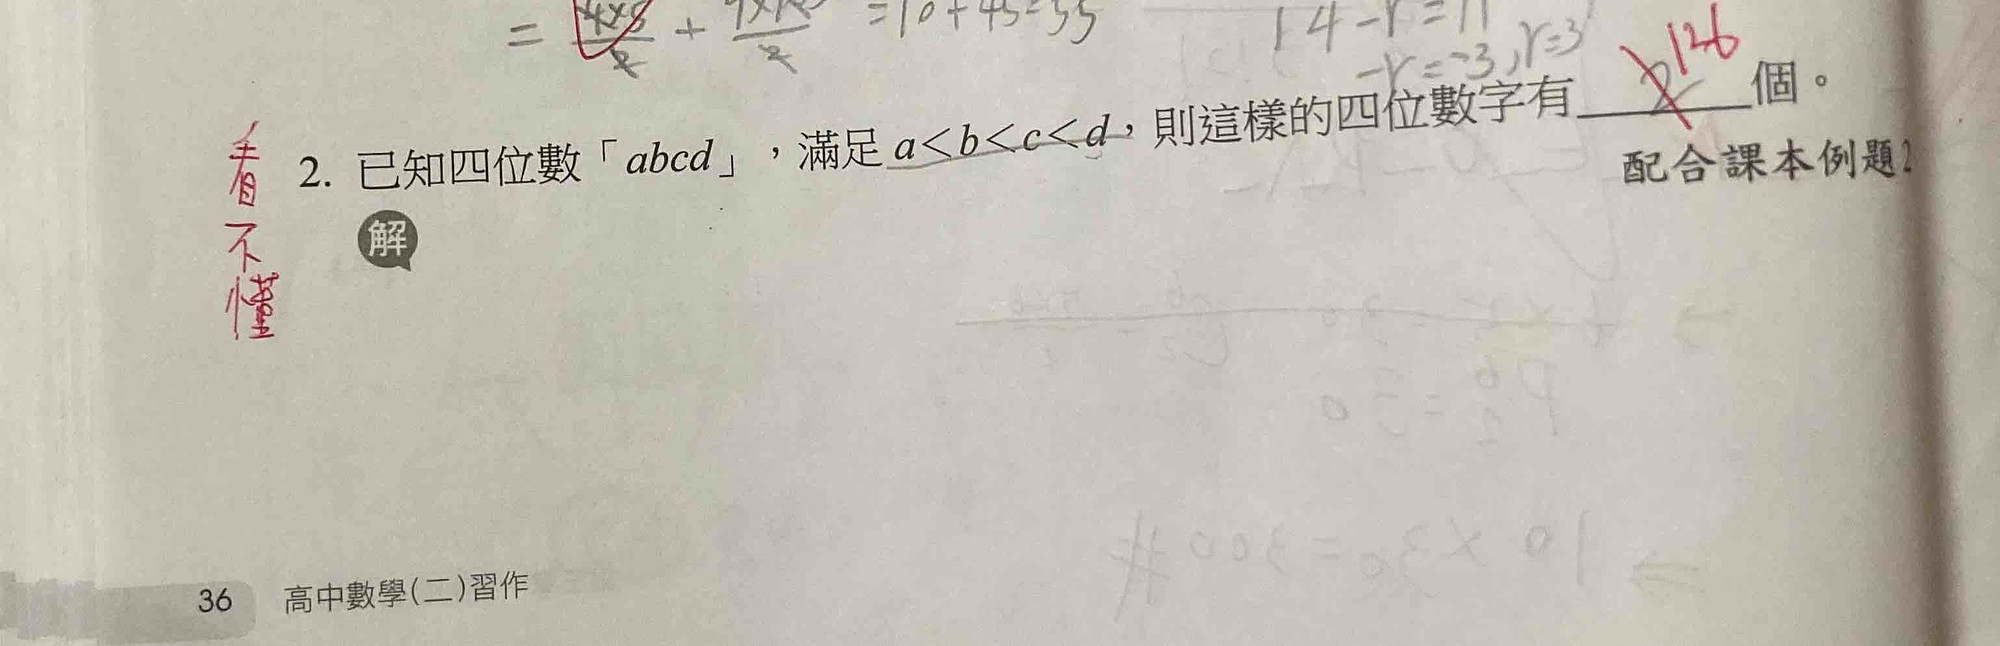 = 4×5/2 + 9×10/2 = 10+45=55
14-r=11
-r=-3, r=3
看不懂
2. 已知四位數「abcd」，滿足 a<b<c<d，則這樣的四位數字有 2 126 個。
配合課本例題2
解
36 高中數學(二)習作